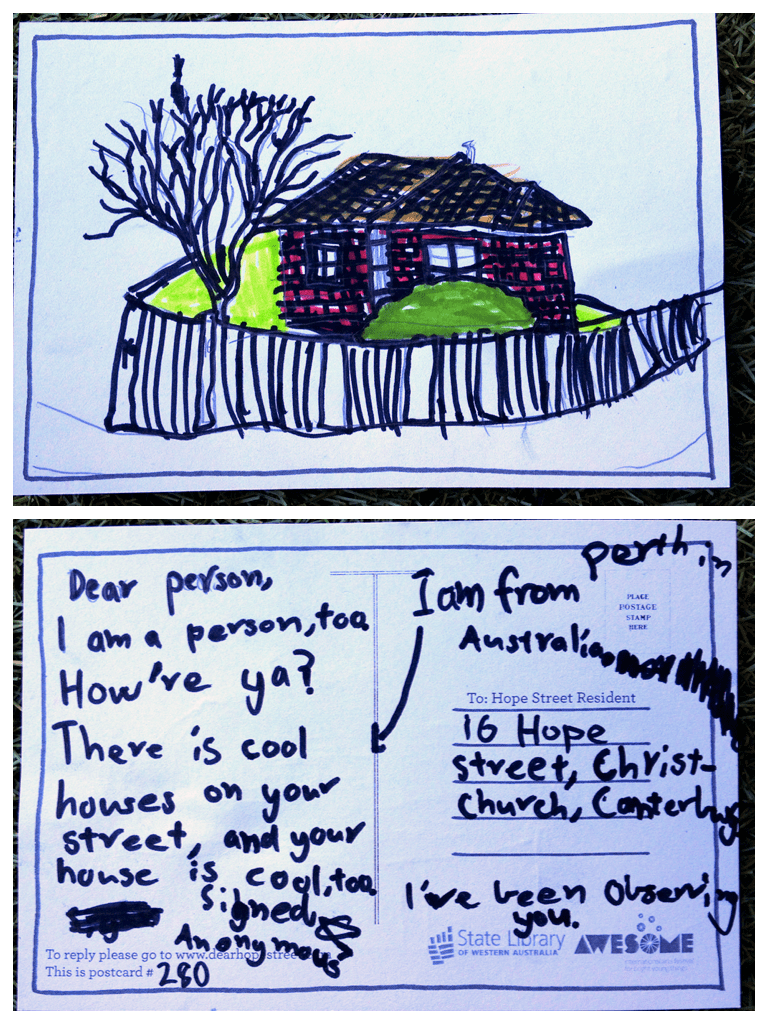 Dear person,
I am a person, too.
How're ya?
There is cool
houses on your
street, and your
house is cool, too.
Signed
Anonymous
To reply please go to www.dearhopestreet
This is postcard # 280
I am from perth, in
Australia.
PLACE
POSTAGE
STAMP
HERE
To: Hope Street Resident
16 Hope
street, Christ-
church, Canterbury
I've been Observing
you.
State Library
OF WESTERN AUSTRALIA
AWESOME